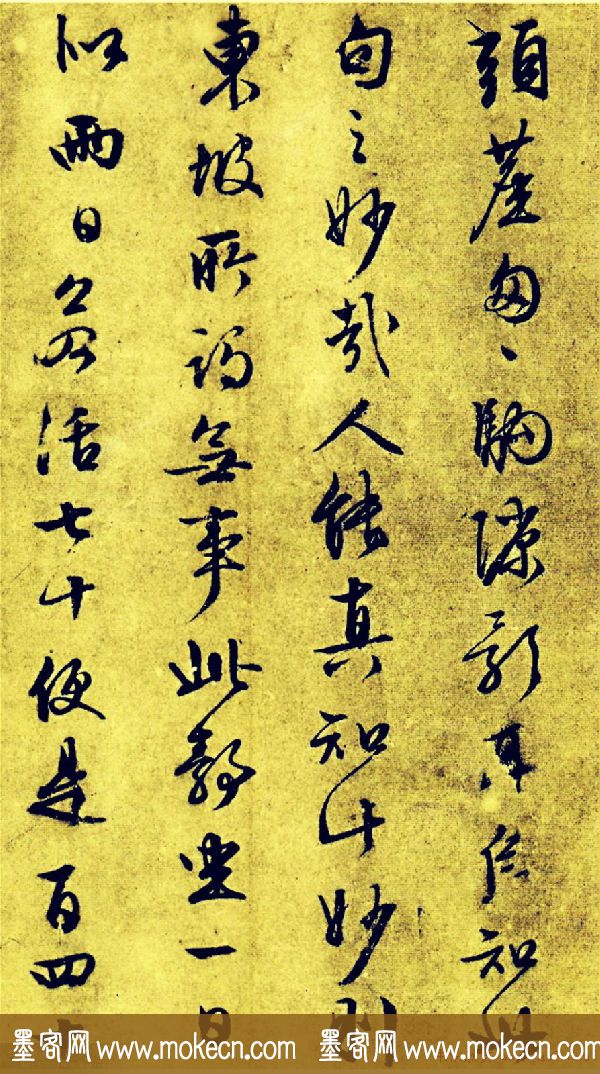 頭塵匆〻駒隙影耳信知此
句之妙哉人能真知此妙則
東坡所謂無事此靜坐一日
似兩日若活七十便是百四
墨客网 www.mokecn.com 墨客网 www.mokecn.com